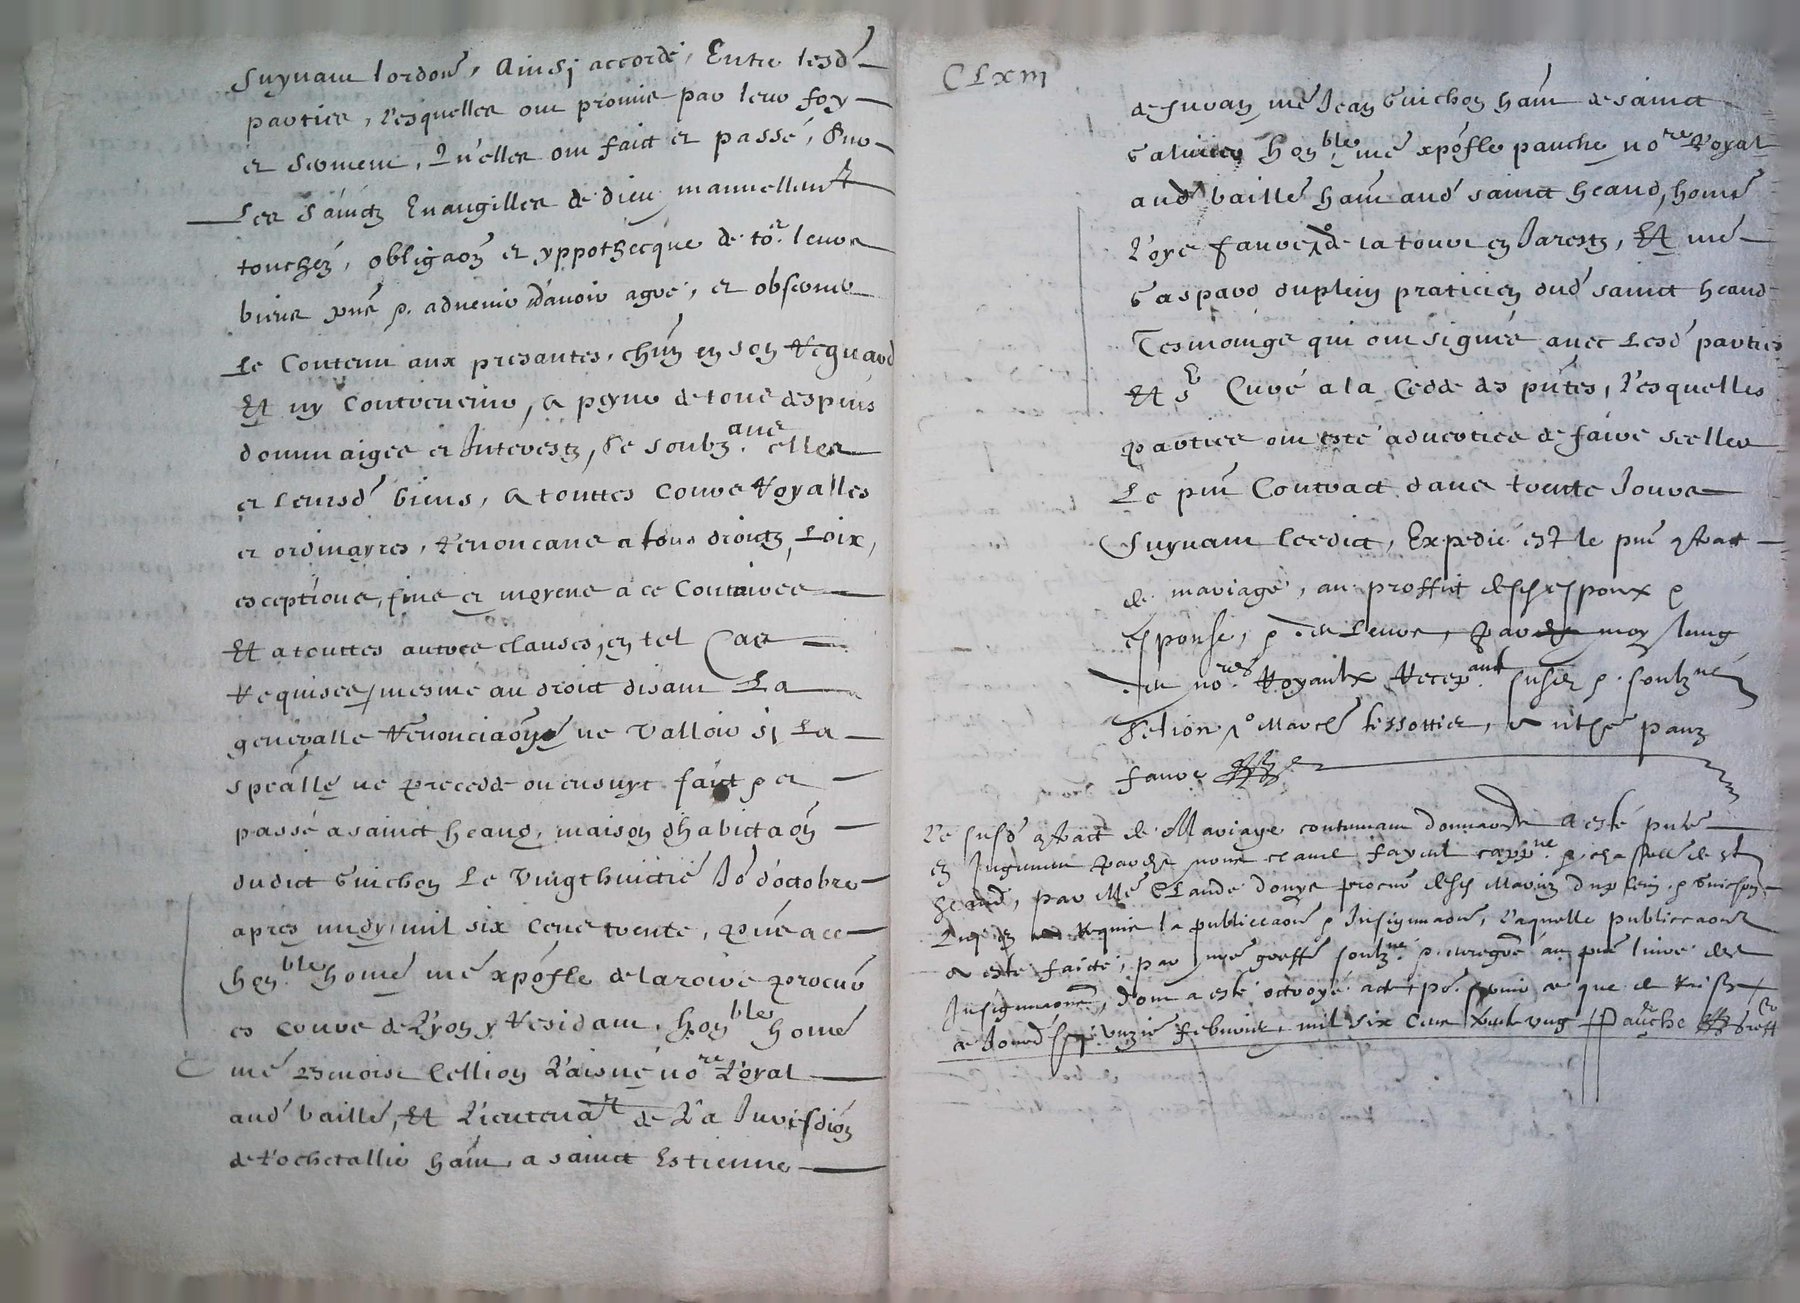 suyvant lordonce, Ainsi accordé, Entre lesd
parties, Lesquelles ont promis par leur foy
et serment, Qu'elles ont faict et passé, sur
Les sainctz Evangilles de dieu manuellemt
touchéz, obligaon et yppothecque de tos. leurs
biens pns & advenir d'avoir agré, et observer
Le Contenu aux presantes, chun en son Reguard
Et ny Contrevenir, a peyne de tous despens
dommaiges et Interestz, Se soubzans. elles
et leursd biens, a touttes Cours Royalles
et ordinayres, Renoncans a tous droictz, Loix,
exceptions, fins et moyens a ce Contraires
Et a touttes autres clauses, en tel Cas
Requises, mesme au droict disant La
generalle Renonciaon ne Valloir si La
spealle ne precedde ou ensuyt faict & et
passé a sainct heand, maison d'habictaon
dudict Guichon Le Vingthuictie Jo d'octobre
apres midy, mil six Cens trente, pns a ce
honble. homé mé xpofle de la roire procur
es Cours de Lyon y Residant, honble homé
mé Esnoise Cellion L'aisné nore Royal
aud baille, Et Lieutenat de La Jurisdion
de Rochetallie hant a sainct Estienne
CLxiii
de furan, mé Jean Guichon hant de sainct
Galmier honble, mé xpofle panche nore Royal
aud baille hant aud sainct heand, homé
Loys faure, de la tour en Jarestz, Et mé
Gaspard duplein praticien dud sainct heand
Tesmoings qui ont signés avec Lesd parties
Et sr Curé a la Cedde des pntes, Lesquelles
parties ont esté adverties de faire sceller
Le pnt Contract dans trente Jours
Suyvant Leedict, Expedié est le pnt contract
de mariage, au proffit desdts espoux &
espouse, & des Leurs, par moy lung
des nores. Royaulx Recepvant susdz & soubzné
faure
Le susd contract de Mariage contenant donnaon a esté publié
en Jugement pardvt nous
heand, par Me Claude donys procur desds Mariez duplein & Guichon
Lequel a Requis la publiccaon & Insignuaon, Laquelle publiccaon
a esté faicte, par mé greffr soubzne. & enregré au pnt livre des
Insignuaons, dont a esté octroyé acte po. servir ce que de Raison
ce Jourd Unzie febvrier, mil six Cens trente ung Panche greff